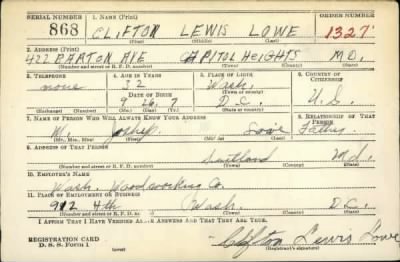 SERIAL NUMBER 1. NAME (Print) ORDER NUMBER
868 CLIFTON LEWIS LOWE 1327
(First) (Middle) (Last)
2. ADDRESS (Print)
422 BARTON AVE CAPITOL HEIGHTS MD.
(Number and street or R. F. D. number) (Town) (County) (State)
3. TELEPHONE 4. AGE IN YEARS 5. PLACE OF BIRTH 6. COUNTRY OF CITIZENSHIP
none 32 Wash.
DATE OF BIRTH (Town or county)
9 26 7 D.C. U.S.
(Exchange) (Number) (Mo.) (Day) (Yr.) (State or country)
7. NAME OF PERSON WHO WILL ALWAYS KNOW YOUR ADDRESS 8. RELATIONSHIP OF THAT PERSON
Mr. Joseph Lowe Father
(Mr., Mrs., Miss) (First) (Middle) (Last)
9. ADDRESS OF THAT PERSON
Suitland Md.
(Number and street or R. F. D. number) (Town) (County) (State)
10. EMPLOYER'S NAME
Wash. Woodworking Co.
11. PLACE OF EMPLOYMENT OR BUSINESS
912 4th Wash. D.C.
(Number and street or R. F. D. number) (Town) (County) (State)
I AFFIRM THAT I HAVE VERIFIED ABOVE ANSWERS AND THAT THEY ARE TRUE.
REGISTRATION CARD
D. S. S. Form 1 (over) Clifton Lewis Lowe
(Registrant's signature)